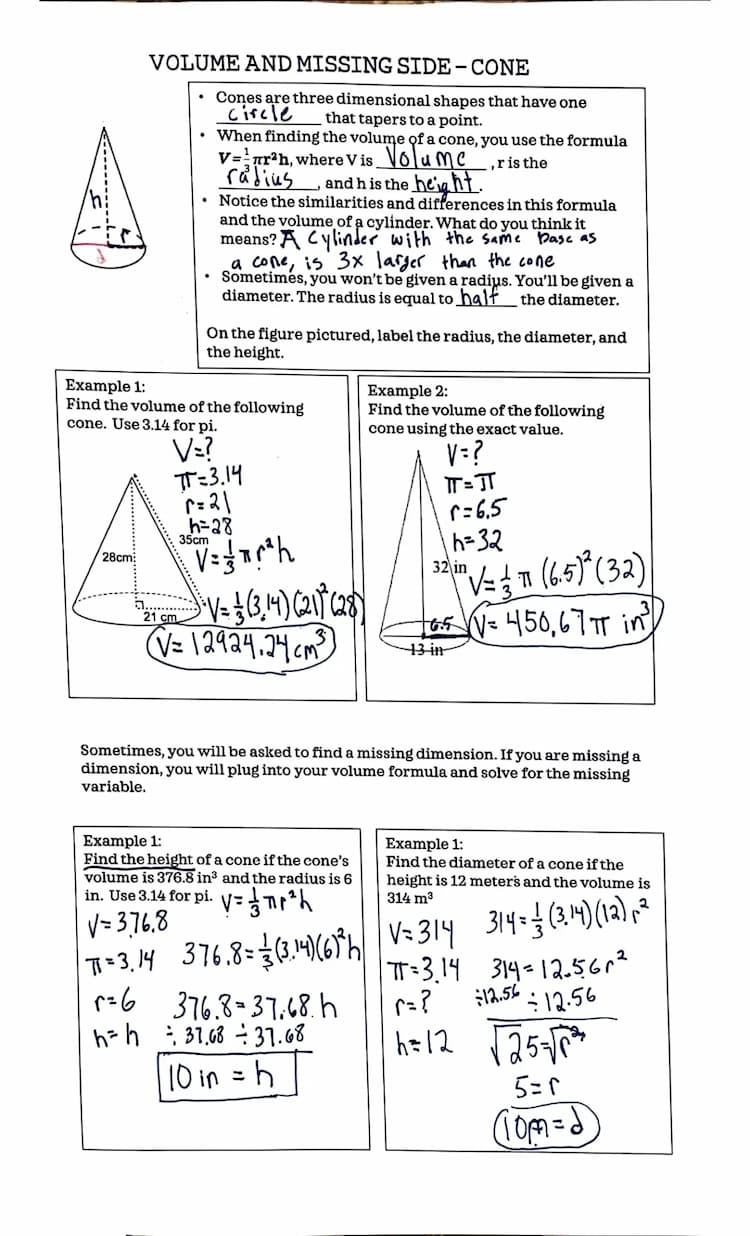 VOLUME AND MISSING SIDE – CONE
• Cones are three dimensional shapes that have one
circle that tapers to a point.
• When finding the volume of a cone, you use the formula
V=⅓πr²h, where V is Volume, r is the
radius, and h is the height.
• Notice the similarities and differences in this formula
and the volume of a cylinder. What do you think it
means? A cylinder with the same base as
a cone, is 3x larger than the cone
• Sometimes, you won't be given a radius. You'll be given a
diameter. The radius is equal to half the diameter.
On the figure pictured, label the radius, the diameter, and
the height.
h
r
d
Example 1:
Find the volume of the following
cone. Use 3.14 for pi.
V=?
π=3.14
r=21
h=28
35cm
V=⅓πr²h
28cm
V=⅓(3.14)(21)²(28)
21 cm
V=12924.24cm³
Example 2:
Find the volume of the following
cone using the exact value.
V=?
π=π
r=6.5
h=32
32 in
V=⅓π(6.5)²(32)
6.5
V=450.67π in³
13 in
Sometimes, you will be asked to find a missing dimension. If you are missing a
dimension, you will plug into your volume formula and solve for the missing
variable.
Example 1:
Find the height of a cone if the cone's
volume is 376.8 in³ and the radius is 6
in. Use 3.14 for pi. V=⅓πr²h
V=376.8
π=3.14 376.8=⅓(3.14)(6)²h
r=6 376.8=37.68h
h=h ÷37.68 ÷37.68
10 in = h
Example 1:
Find the diameter of a cone if the
height is 12 meters and the volume is
314 m³
V=314 314=⅓(3.14)(12)r²
π=3.14 314=12.56r²
r=? ÷12.56 ÷12.56
h=12 √25=√r²
5=r
10m=d